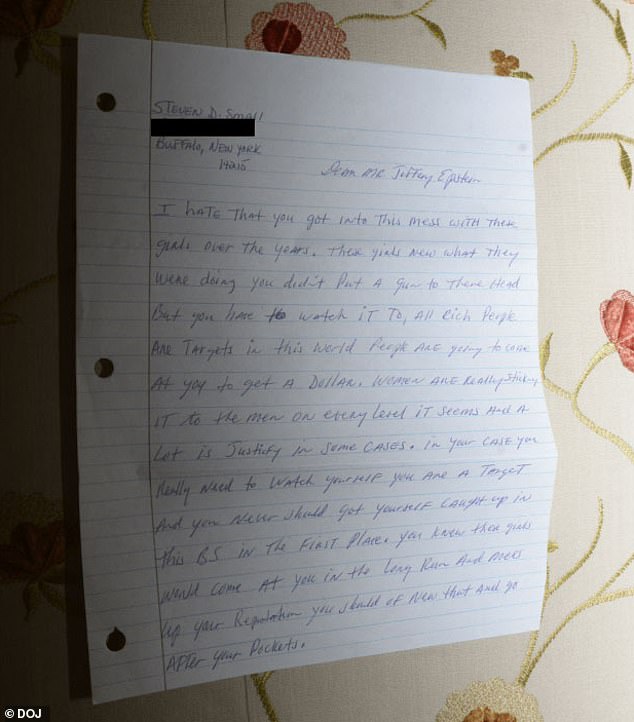 STEVEN D. Small
BUFFALO, NEW YORK
14215
Dear MR Jeffery Epstein
I HATE THAT you got into This mess with these
girls over the years. These girls New what They
Were doing you didn't Put A gun to There Head
But you have to watch iT To, All Rich People
Are TArgeTs in this World People ARE going to come
AT you to get A DollAr. WOMEN ARE Really Sticking
IT to the men on every level iT seems And A
Lot is Justify in Some CASES. in your CASE you
Really Need to Watch yourself you Are A Target
And you Never should got yourself CAught up in
this BS in The First Place. you knew these girls
would come AT you in the Long Run And mess
up your Reputation you should of New that And go
AFTer your Pockets.
© DOJ